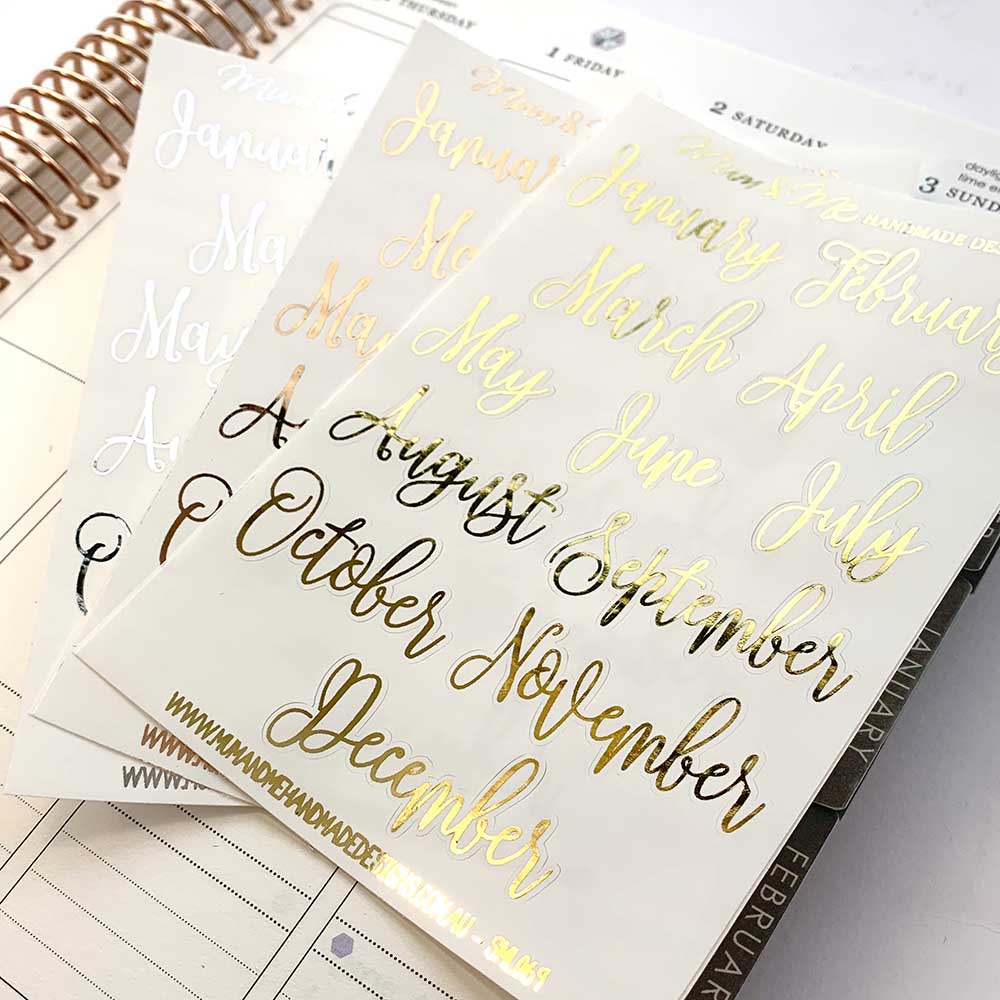 THURSDAY
1 FRIDAY
2 SATURDAY
3 SUND
dayli
time e
Mum
Janua
Ma
May
A
O
WWW.M
Mum &
Janua
M
Ma
A
O
WWW.M
Mum & Me HANDMADE DES
January February
March April
May June July
August September
October November
December
WWW.MUMANDMEHANDMADEDESIGNS.COM.AU - SML069
JANUARY
FEBRUAR